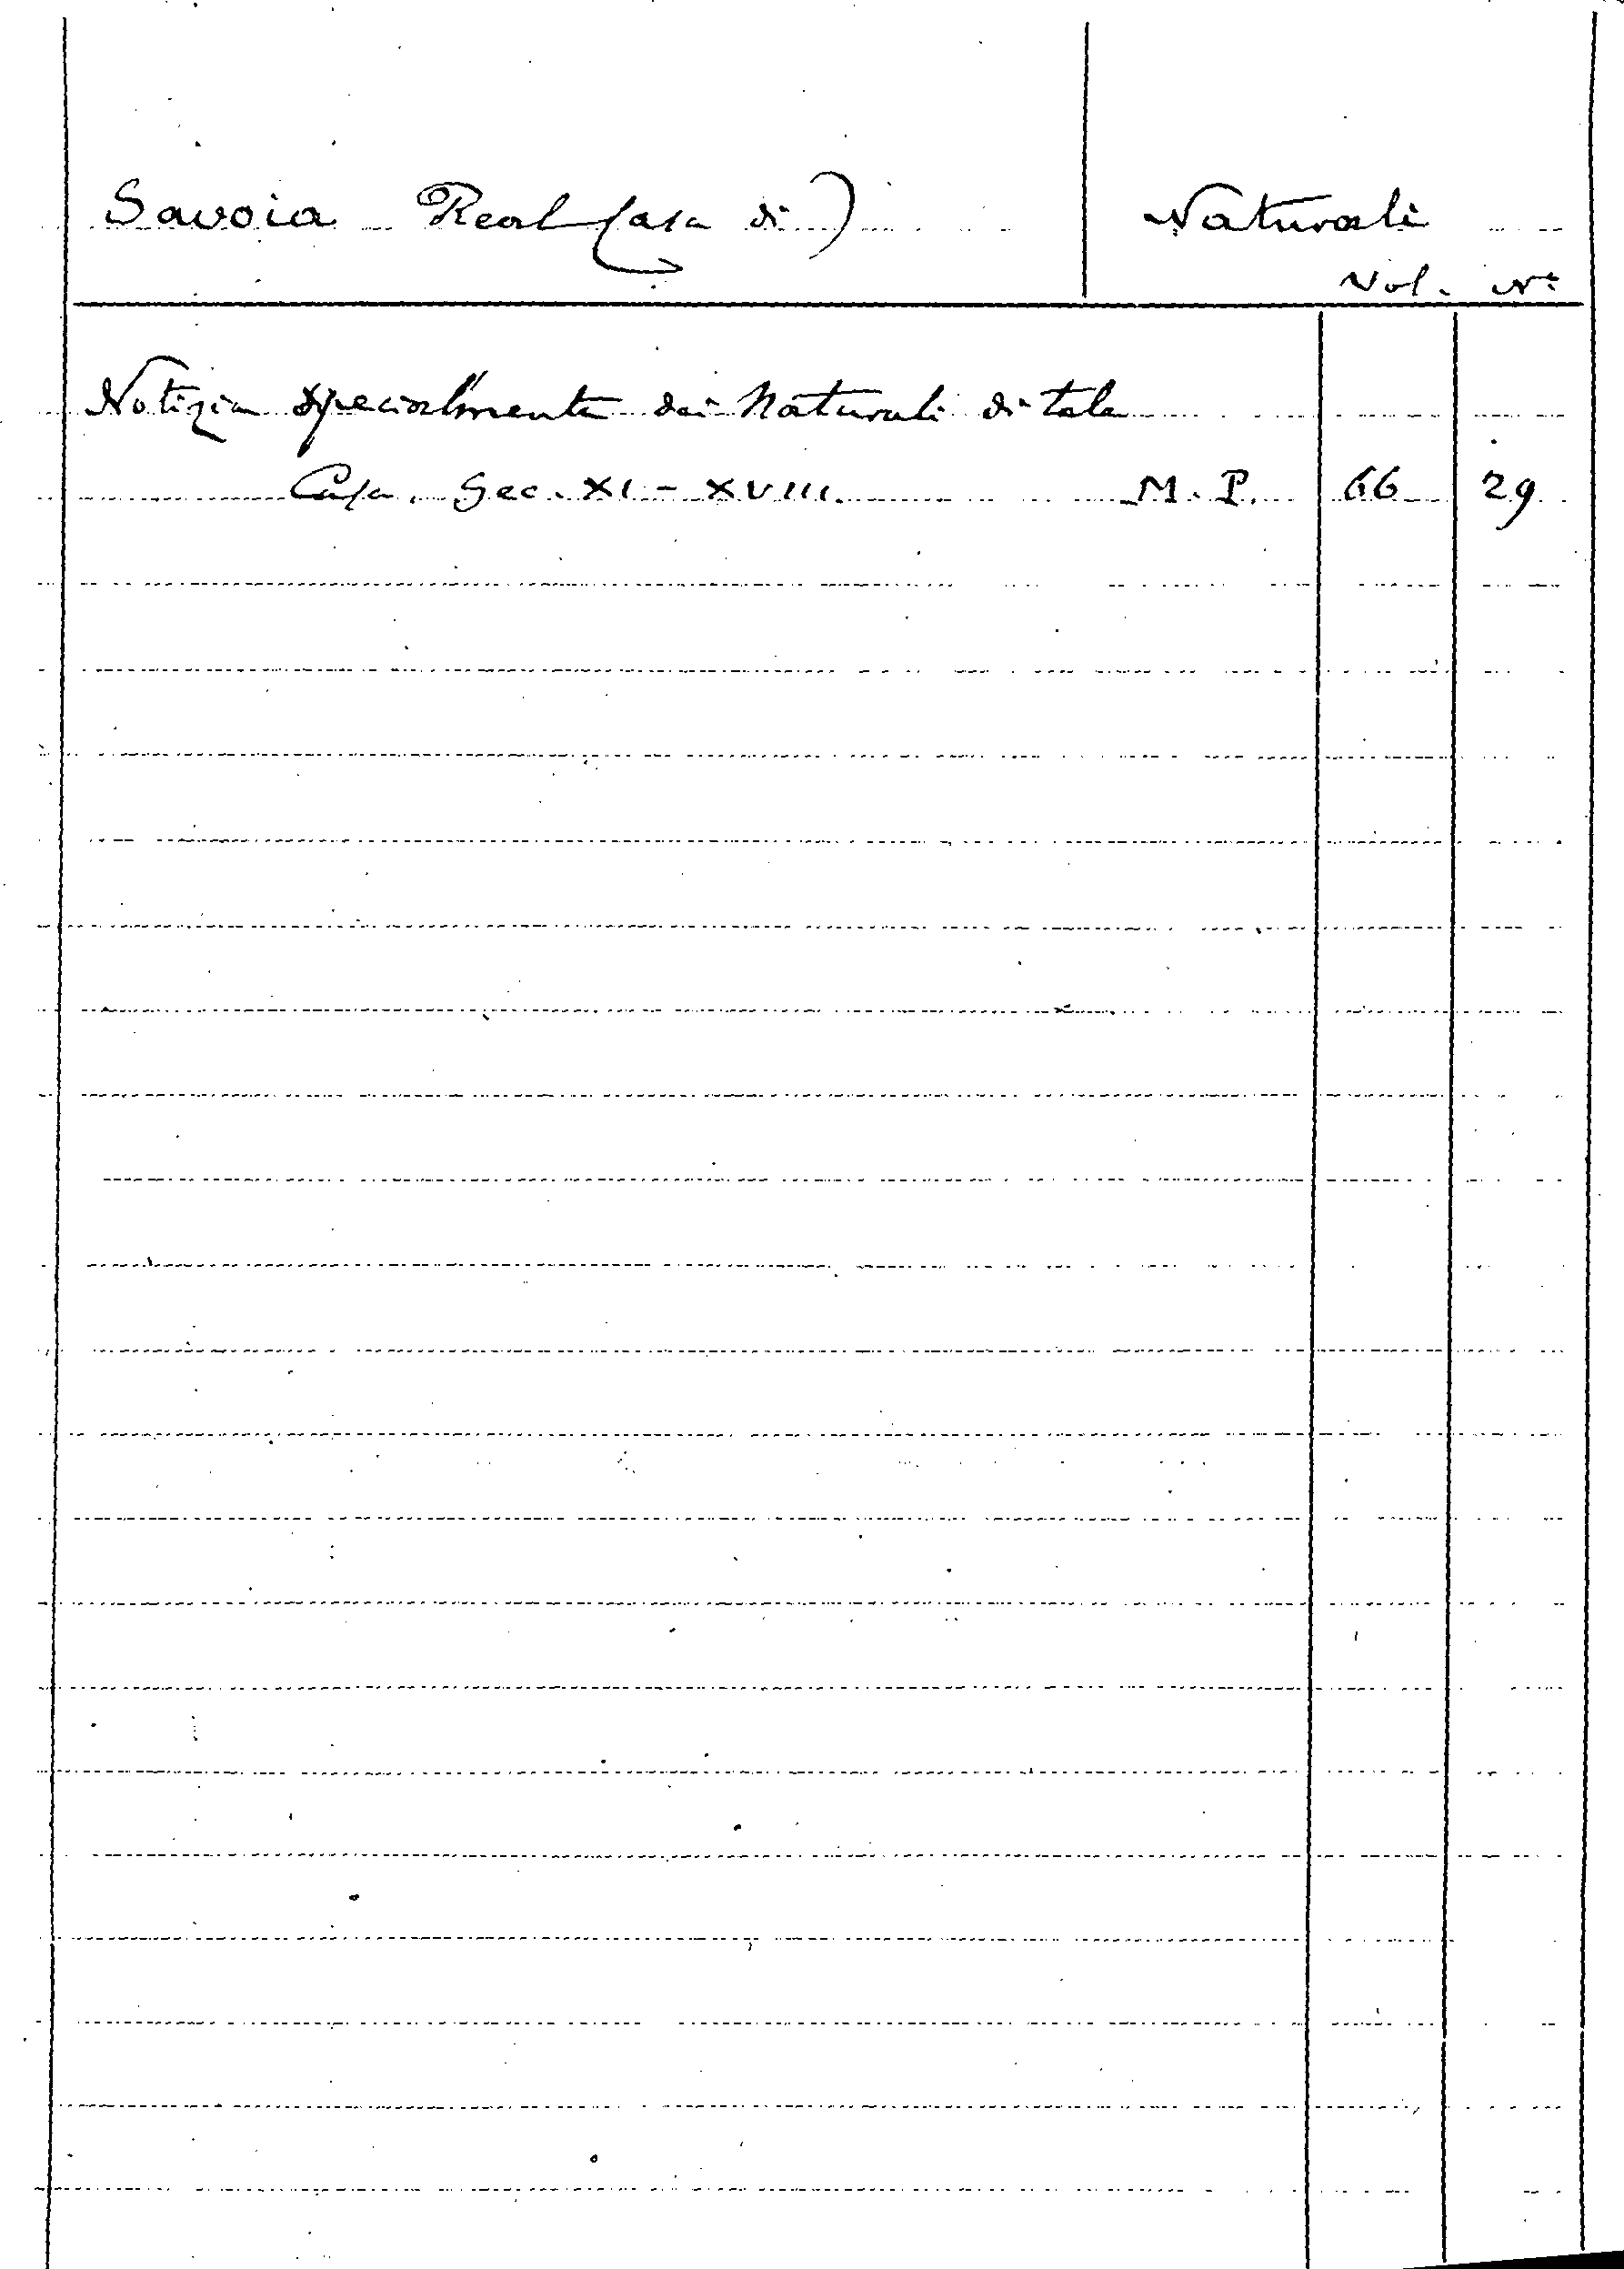 Savoia Real Casa di) Naturali
Vol. N°
Notizia specialmente dei Naturali di tale
Casa. Sec. XI - XVIII. M. P. 66 29